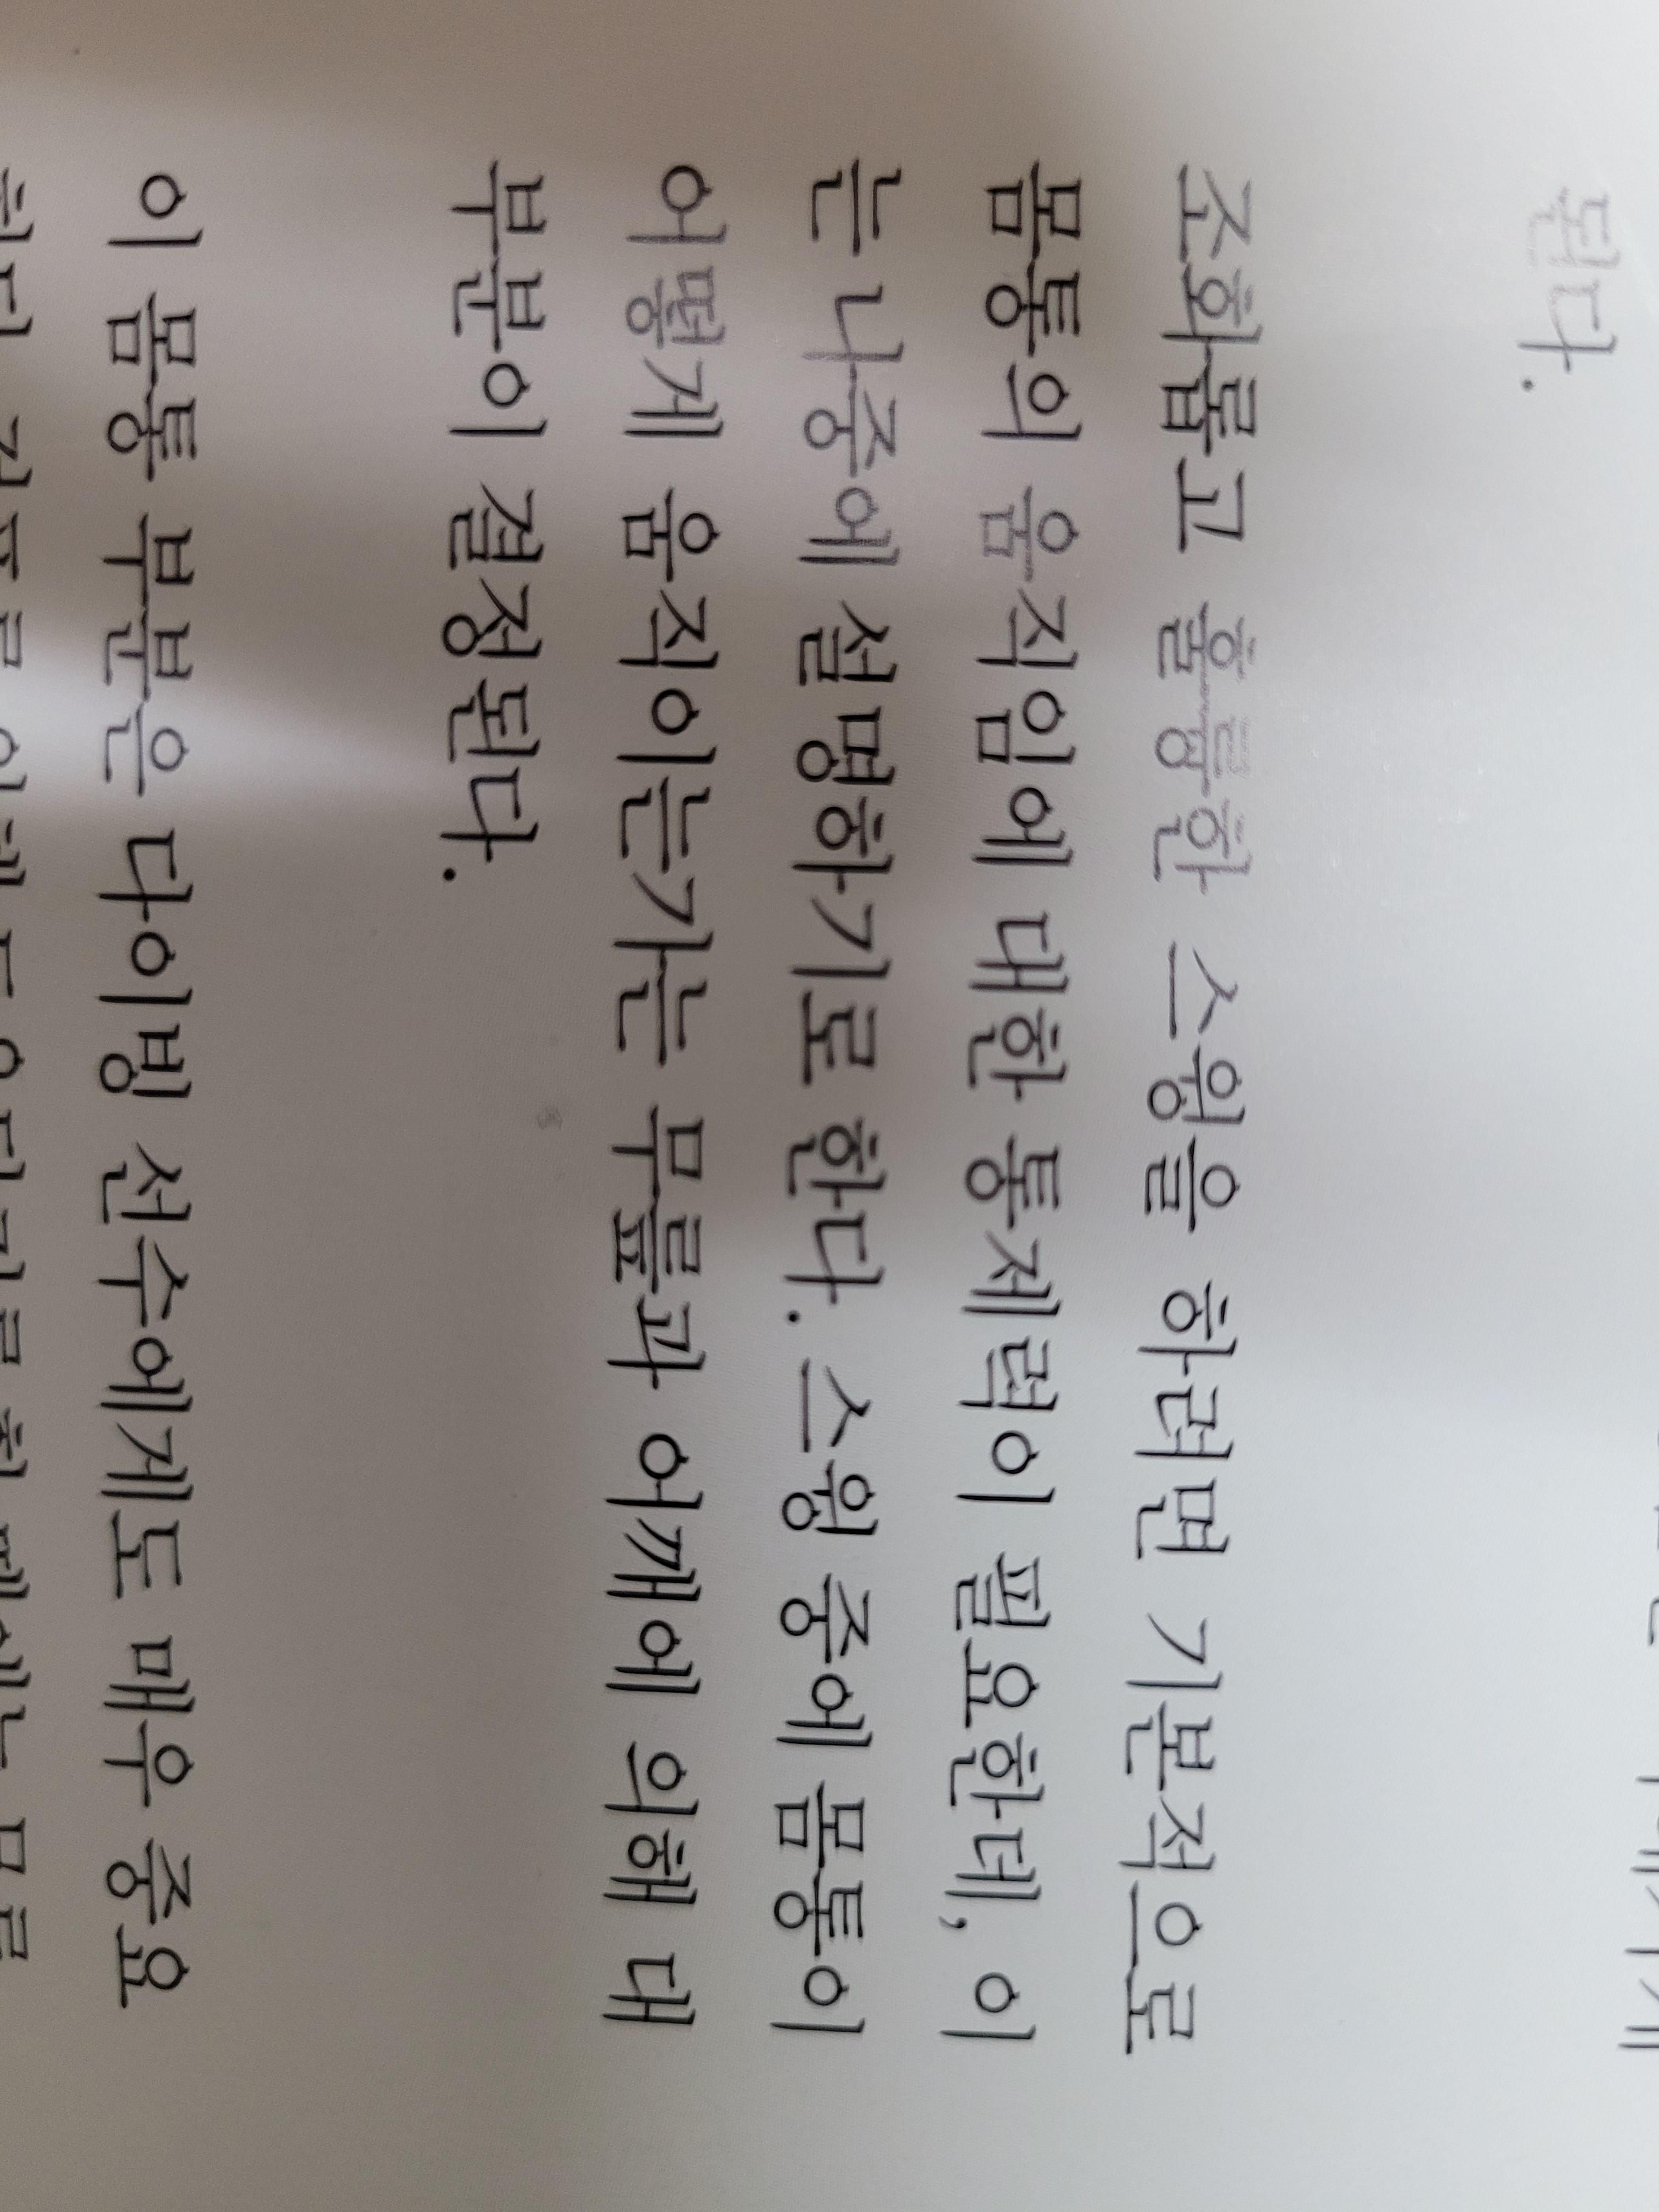 된다.
조화롭고 훌륭한 스윙을 하려면 기본적으로
몸통의 움직임에 대한 통제력이 필요한데, 이
는 나중에 설명하기로 한다. 스윙 중에 몸통이
어떻게 움직이는가는 무릎과 어깨에 의해 대
부분이 결정된다.
이 몸통 부분은 다이빙 선수에게도 매우 중요